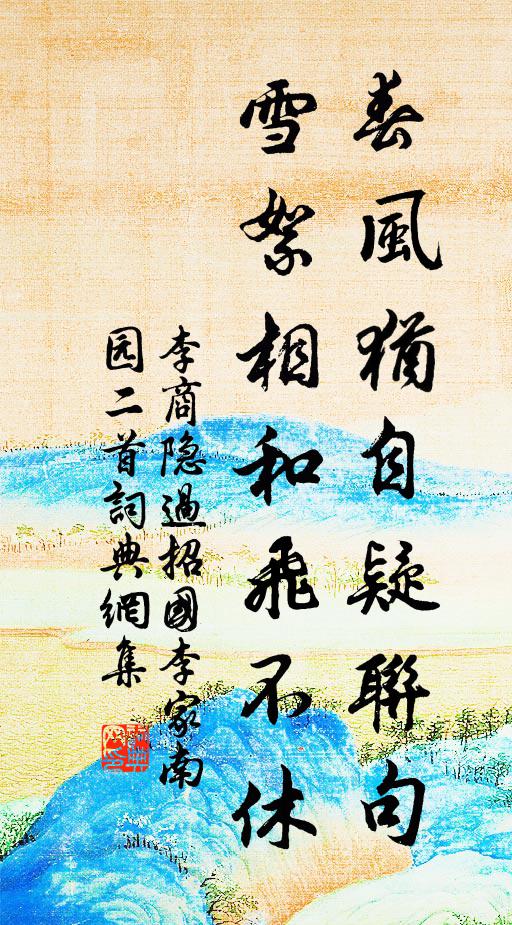 春風猶自疑聯句
雪絮相和飛不休
李商隐過招國李家南
园二首詞典網集